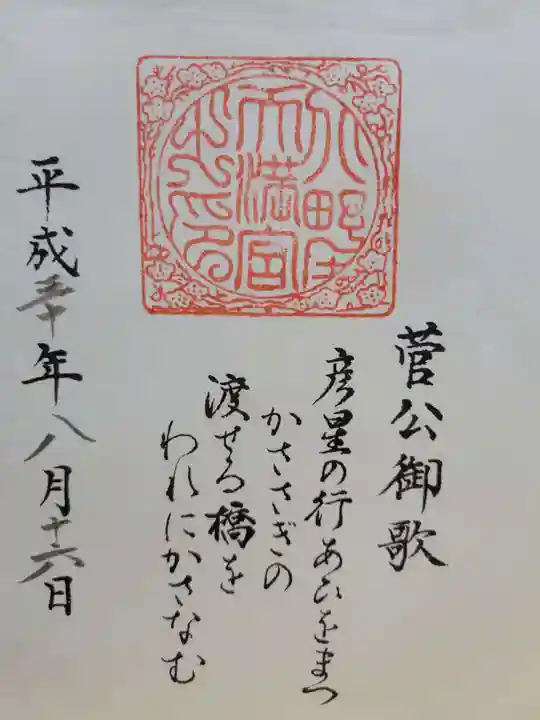 天満宮
之印
菅公御歌
彦星の行あひをまつ
かささぎの
渡せる橋を
われにかさなむ
平成三十年八月十六日